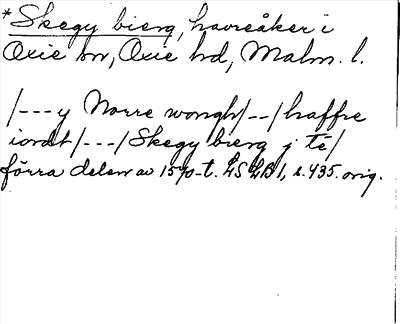 *Skegy bierg, havreåker i
Oxie sn, Oxie hd, Malm. l.
/---y Norre wongh/--/haffre
iordt/---/Skegy bierg j té/
förra delen av 1570-t. LSLB 1, s. 435. orig.